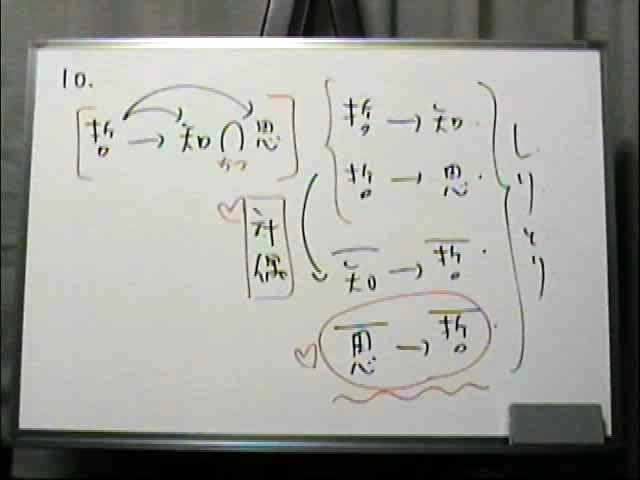 10.
[哲 → 知 ∩ 思]
かつ
哲 → 知.
哲 → 思.
対偶
知̅ → 哲̅.
思̅ → 哲̅.
しりとり